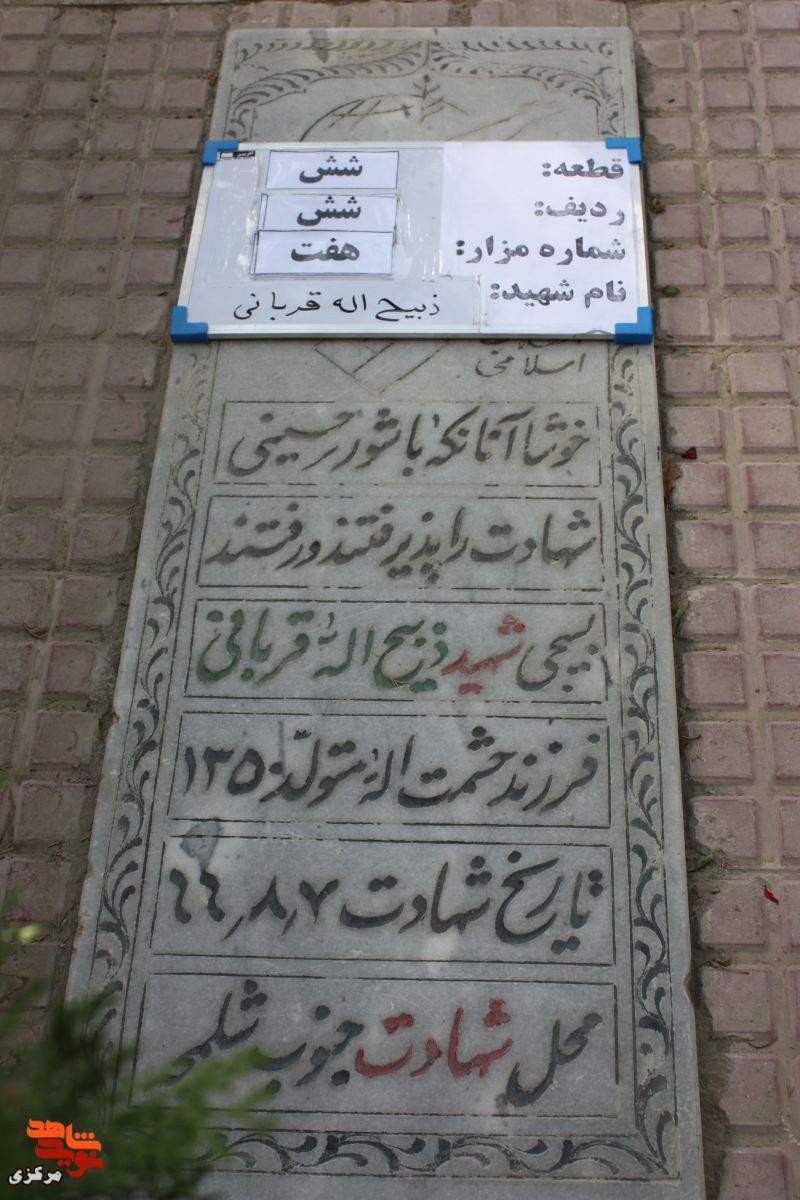 قطعه: شش
ردیف: شش
شماره مزار: هفت
نام شهید: ذبیح اله قربانی
اسلامی
خوشا آنانکه با شور حسینی
شهادت را پذیرفتند و رفتند
بسیجی شهید ذبیح اله قربانی
فرزند حشمت اله متولد ۱۳۵۰
تاریخ شهادت ۶۶٫۸٫۷
محل شهادت جنوب شلمچه
نوید شاهد
مرکزی